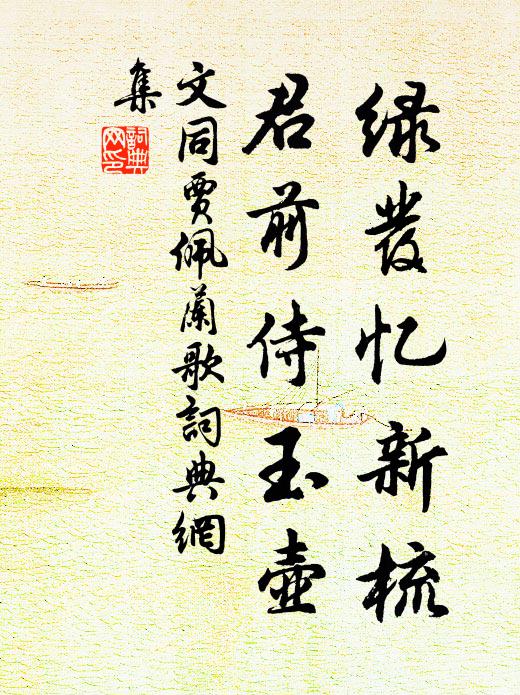 绿發忆新梳
君前侍玉壶
文同贾佩蘭歌詞典網
集
詞典网印